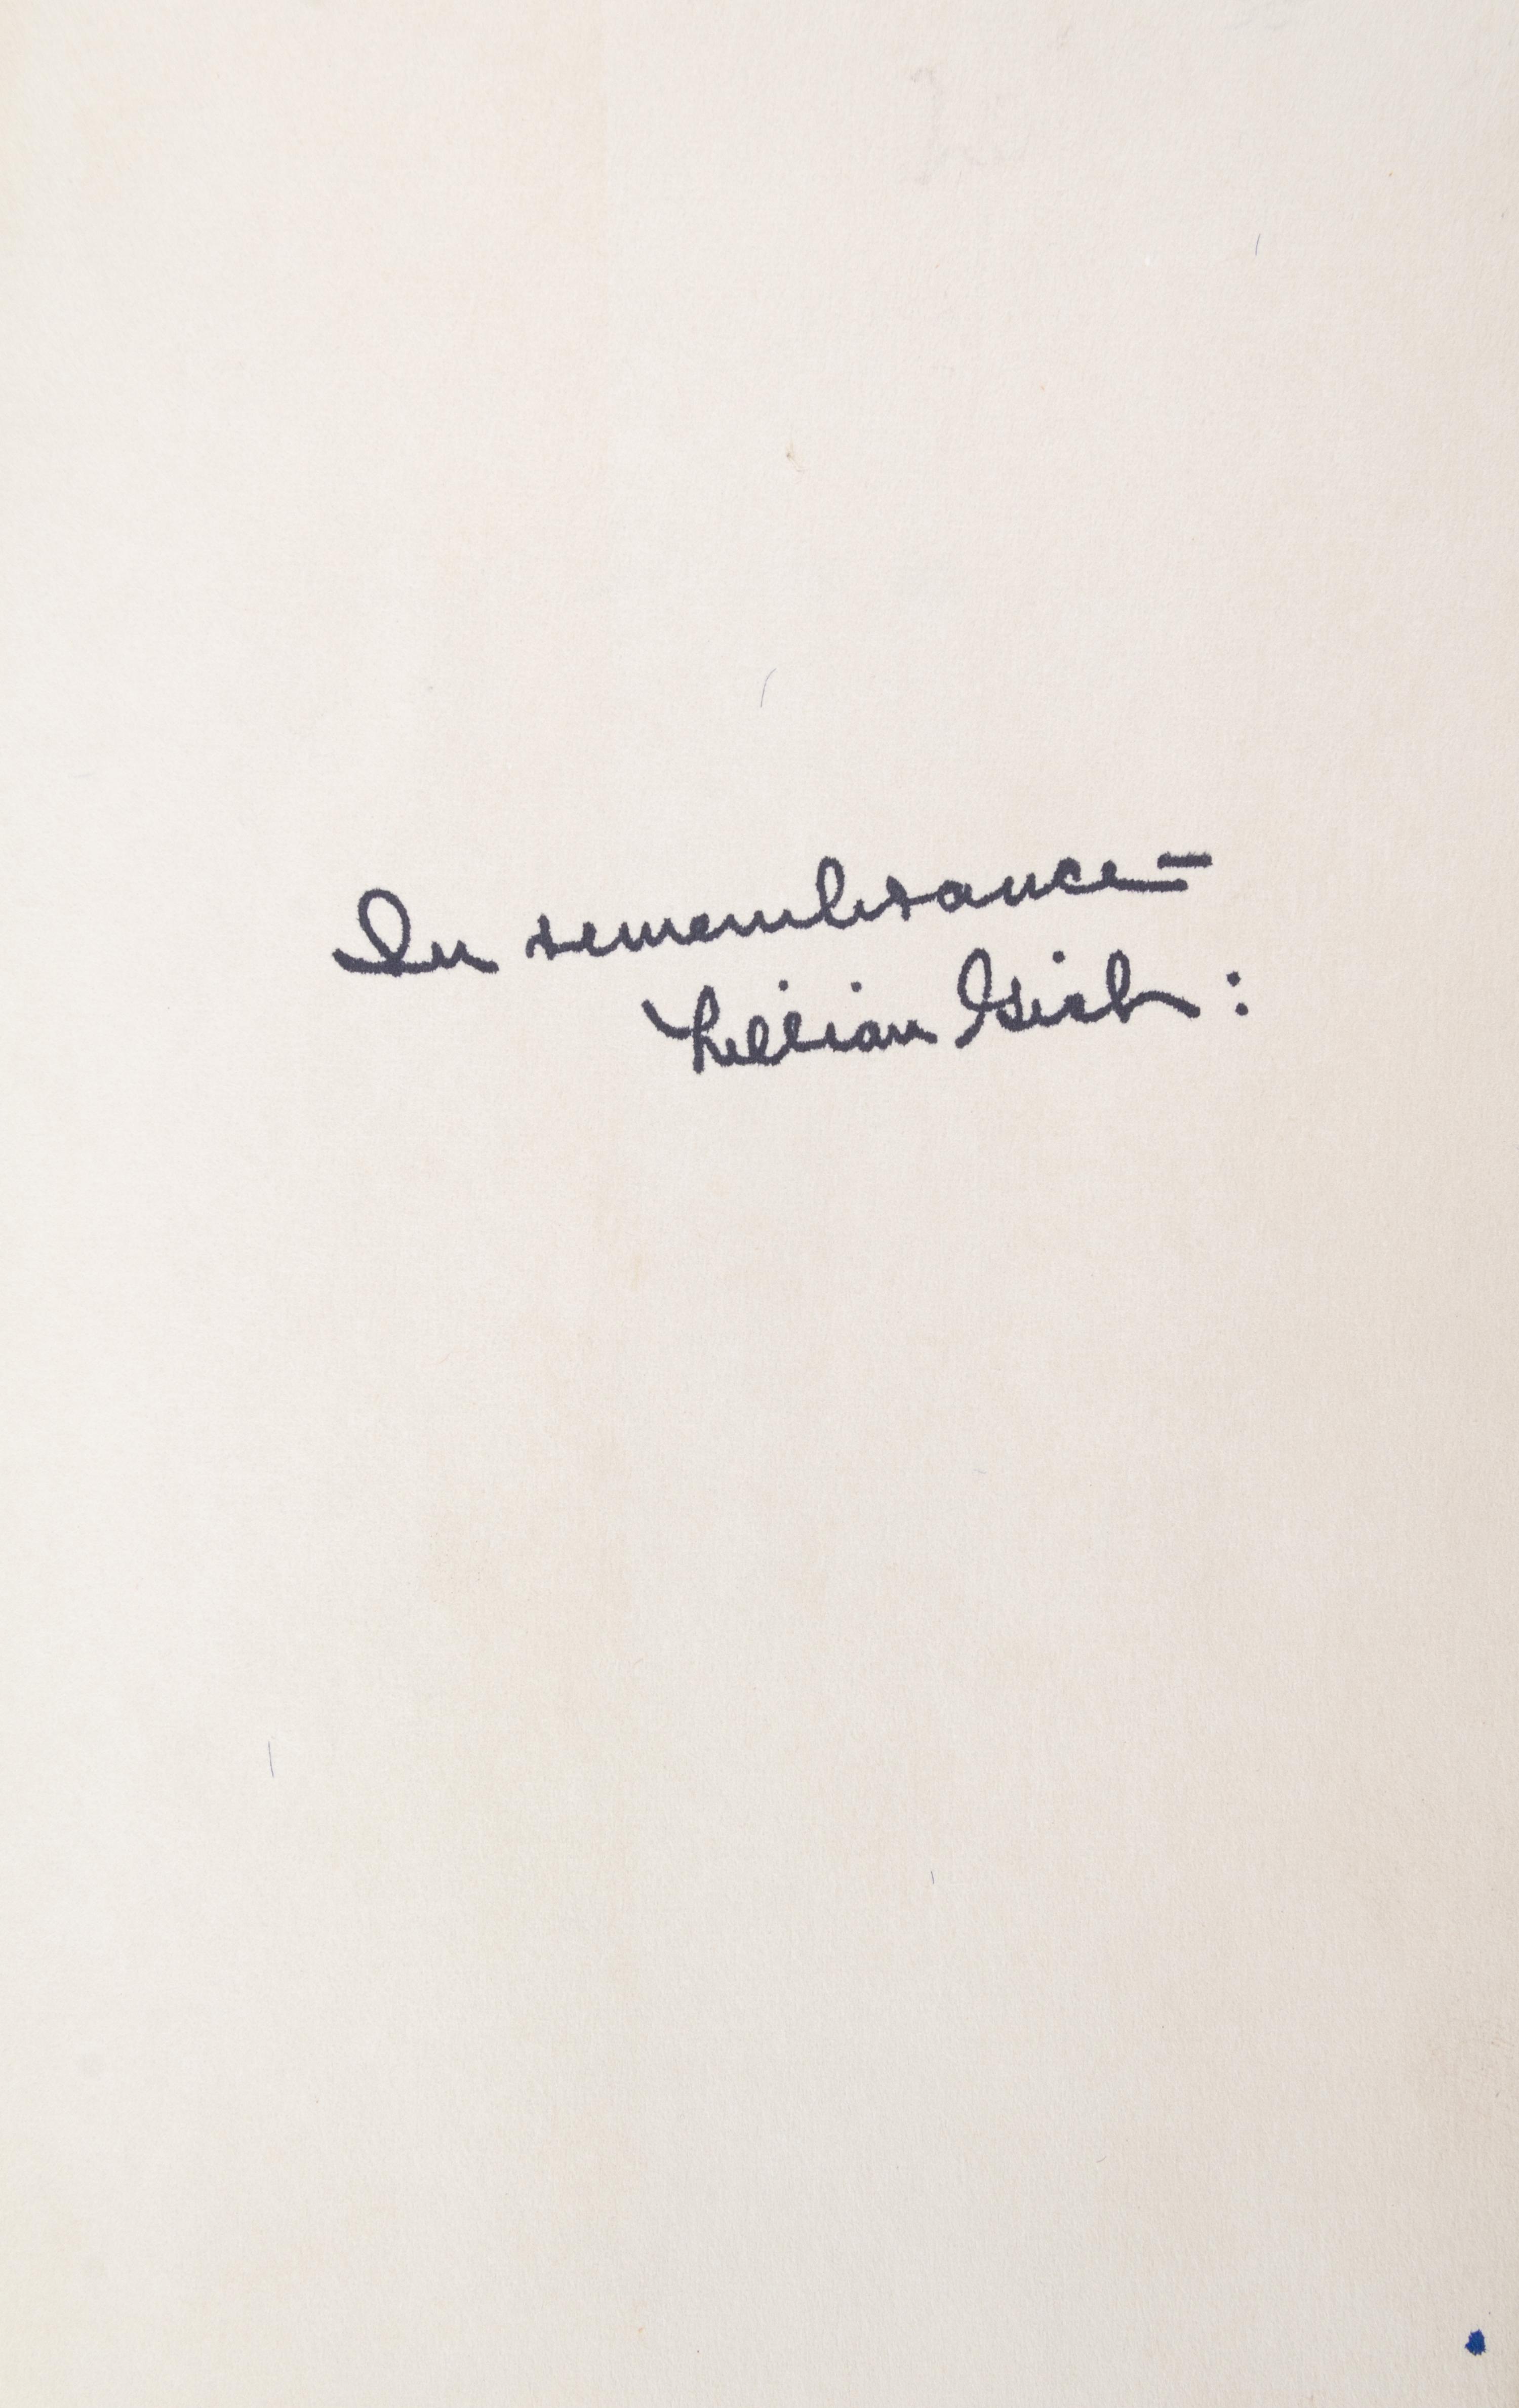 In remembrance =
Lillian Gish :